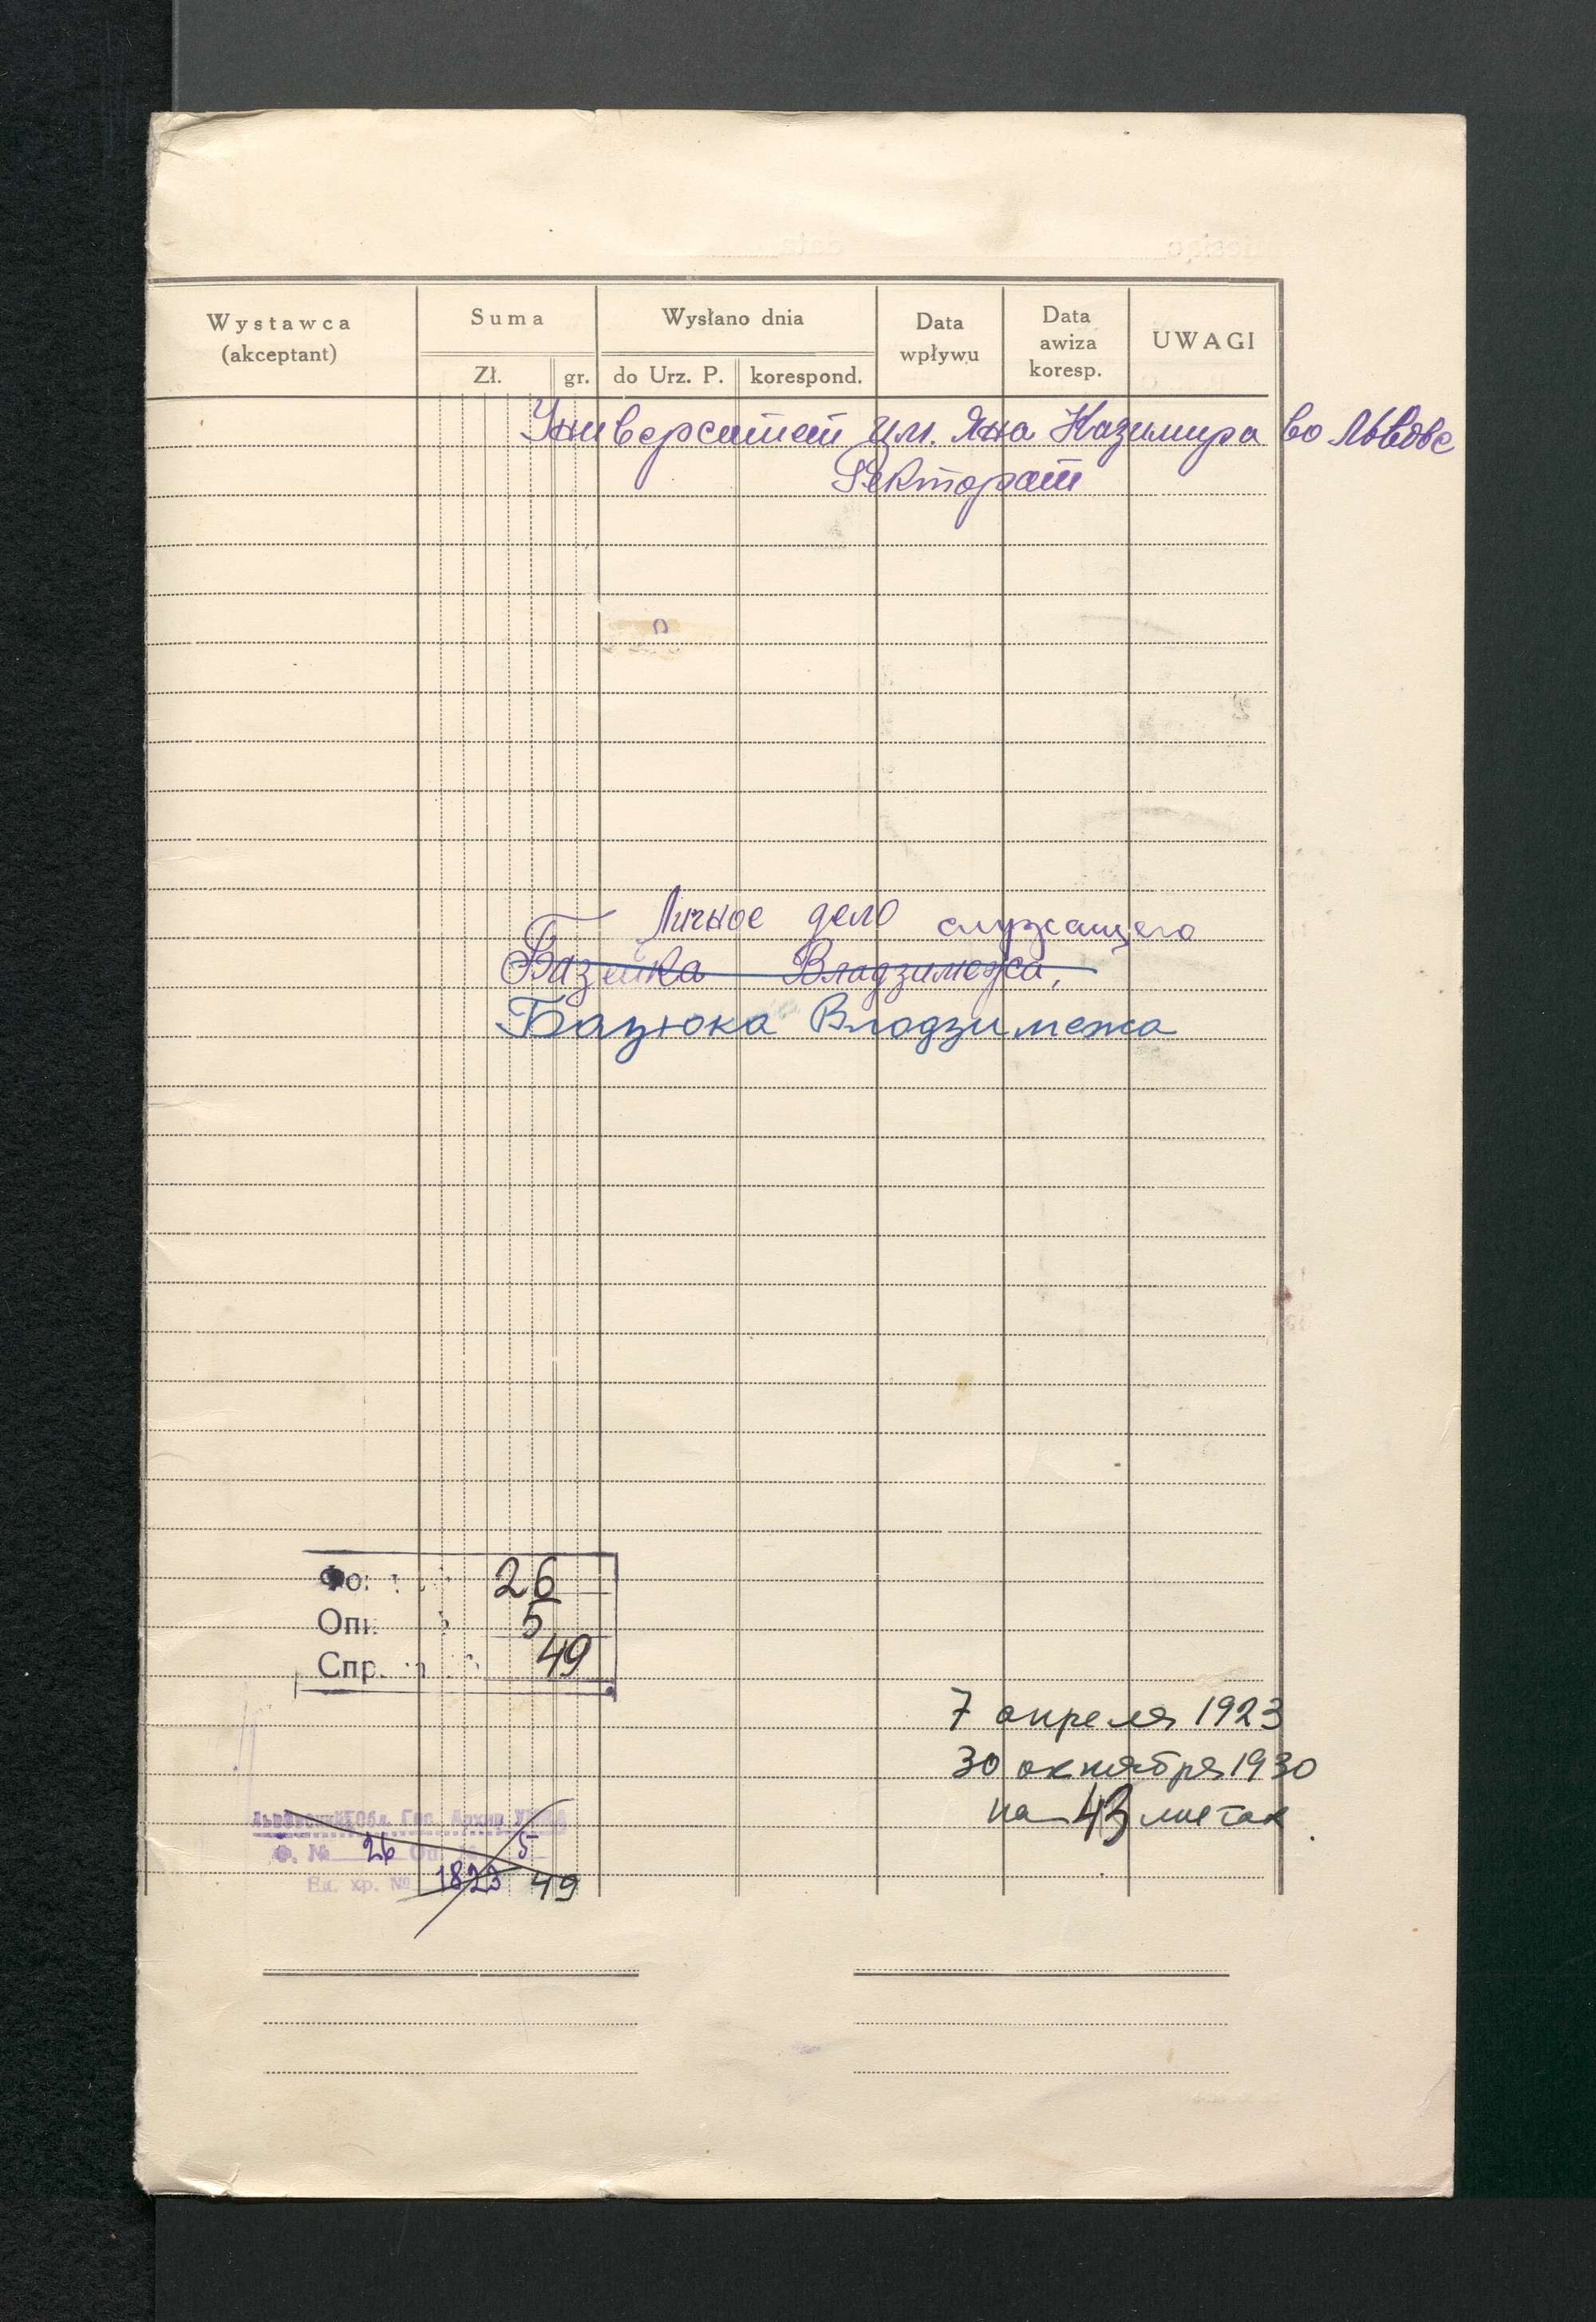 Wystawca
(akceptant)
Suma
Zł. gr.
Wysłano dnia
do Urz. P. korespond.
Data
wpływu
Data
awiza
koresp.
UWAGI
Университет им. Яна Казимира во Львове
Ректорат
Личное дело служащего
Базейка Владзимежа,
Базюка Влодзимежа
26
5
49
7 апреля 1923
30 октября 1930
на 43 листах.
Львовский Обл. Гос. Архив
Ф. № 26 Оп. 5
Ед. хр. № 1823 49